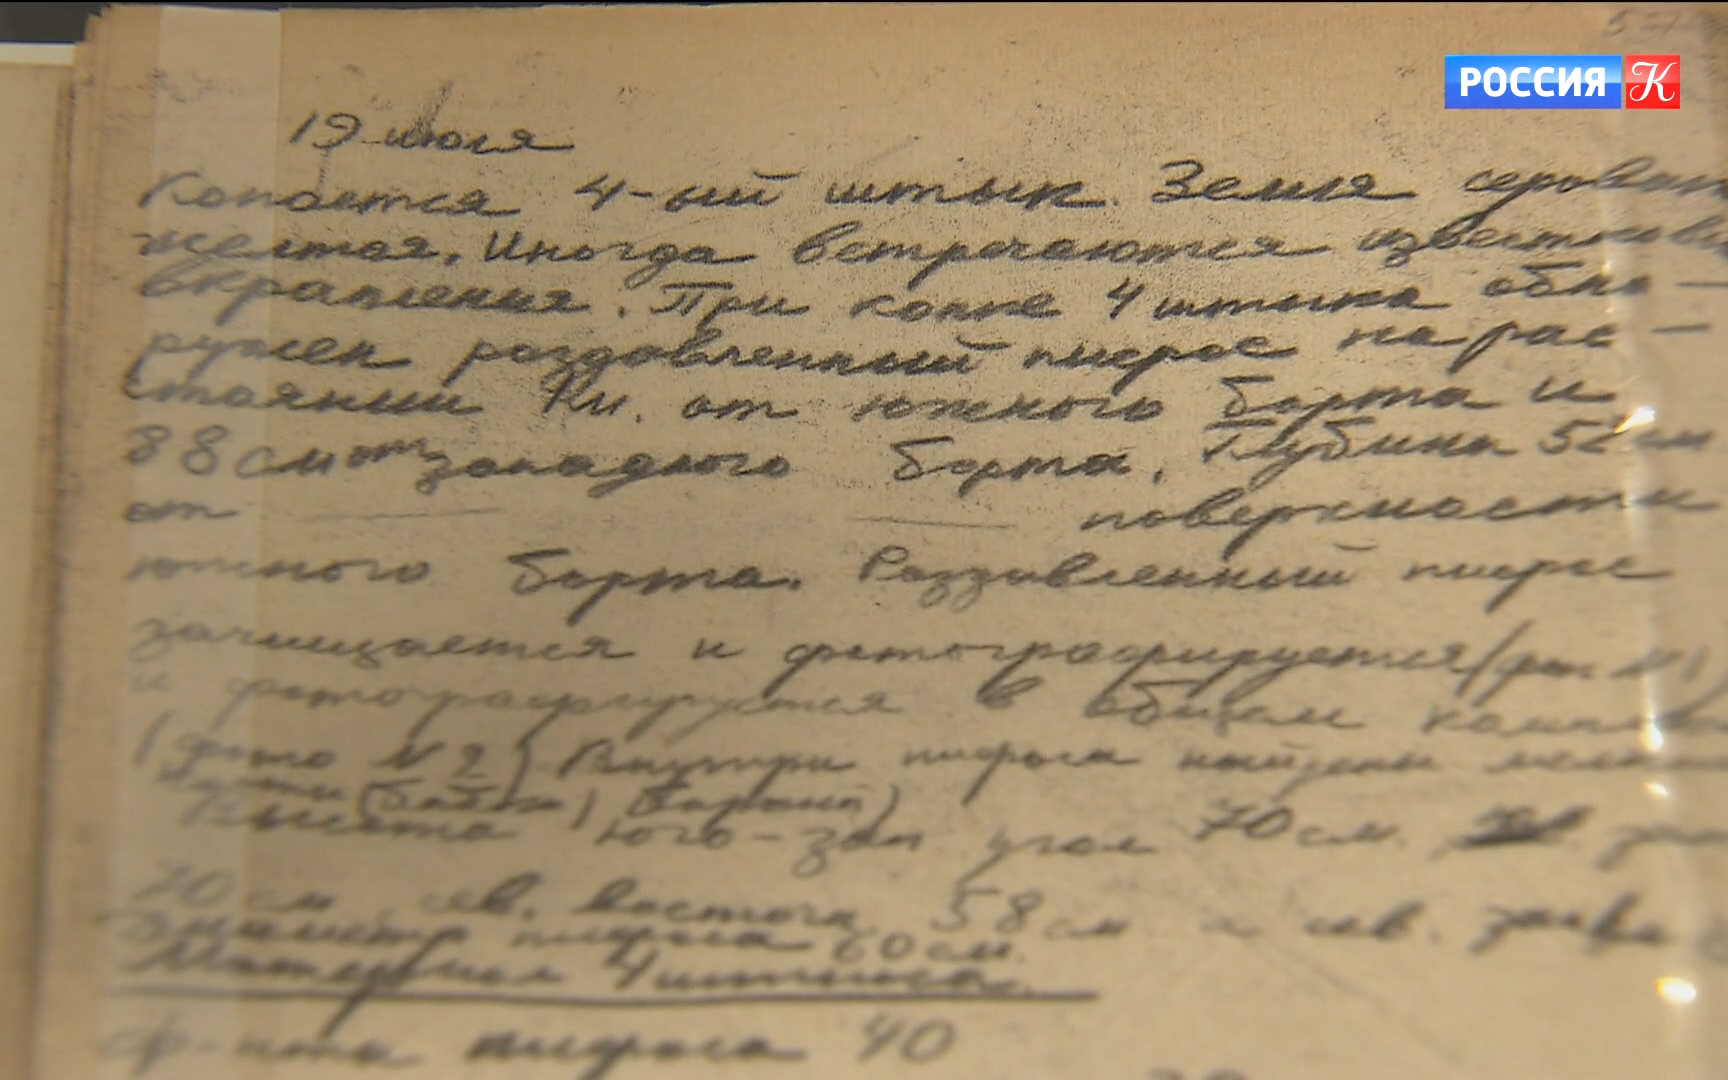 57
РОССИЯ К
19 июля
Копается 4-ый штык. Земля серовато
желтая. Иногда встречаются известковые
вкрапления. При копке 4 штыка обна-
ружен раздавленный пифос на рас-
стоянии 1 м. от южного борта и
88 см от западного борта. Глубина 52 см
от поверхности
южного борта. Раздавленный пифос
зачищается и фотографируется (фот. N 1)
и фотографируется в общем
(фото N 2) Внутри пифоса найдены
кости
Высота юго-зап угол 70 см.
70 см. сев. восточн 58 см. и сев.
Диаметр пифоса 60 см.
Материал 4 штыка.
ф-нты пифоса 40